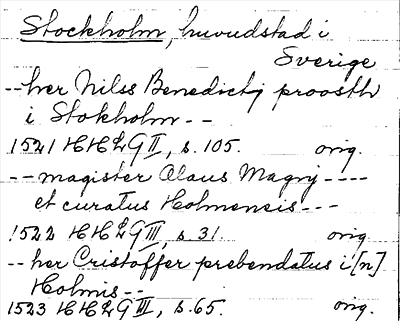 Stockholm, huvudstad i
Sverige
--her Nilss Benedictj proosth
i Stokholm--
1521 HH 2 G II, s. 105. orig.
--magister Olaus Magnj----
et curatus Holmensis---
1522 HH 2 G III, s. 31. orig.
--her Cristoffer prebendatus i[n]
Holmis--
1523 HH 2 G III, s. 65. orig.